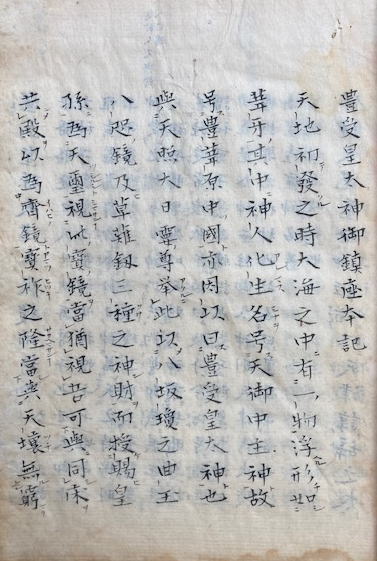 豊受皇太神御鎮座本記
天地初發之時大海之中有一物浮形如
葦牙其中神人化生名号天御中主神故
号豊葦原中國亦因以曰豊受皇太神也
與天照大日孁尊挙此以八坂瓊之曲玉
八咫鏡及草薙釼三種之神財而授賜皇
孫為天璽視此寳鏡當猶視吾可與同床
共殿以為齊鏡寳祚之隆當與天壤無窮